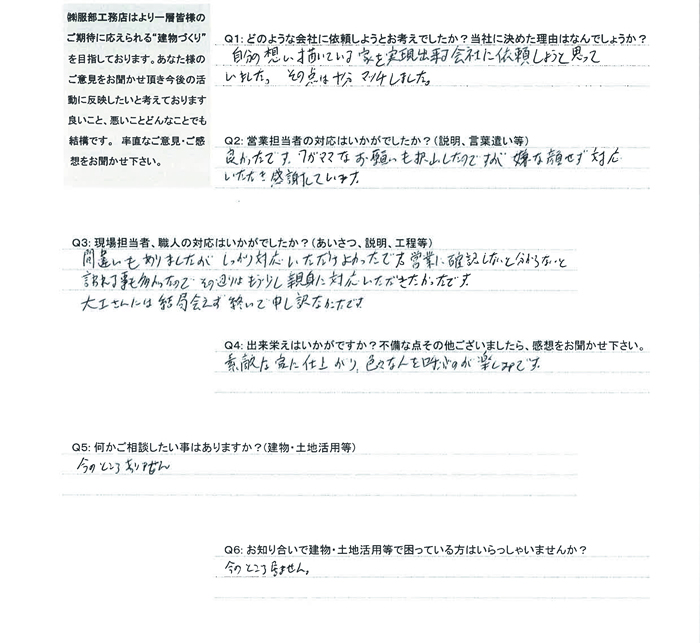 ㈱服部工務店はより一層皆様の
ご期待に応えられる“建物づくり”
を目指しております。あなた様の
ご意見をお聞かせ頂き今後の活
動に反映したいと考えております
良いこと、悪いことどんなことでも
結構です。 率直なご意見・ご感
想をお聞かせ下さい。
Q1: どのような会社に依頼しようとお考えでしたか？当社に決めた理由はなんでしょうか？
自分の想い描いている家を実現出来る会社に依頼しようと思って
いました。 その点は マッチしました。
Q2: 営業担当者の対応はいかがでしたか？（説明、言葉遣い等）
良かったです。ワガママなお願いも沢山したのですが 嫌な顔せず対応
いただき感謝しています。
Q3: 現場担当者、職人の対応はいかがでしたか？（あいさつ、説明、工程等）
間違いもありましたが しっかり対応いただけてよかったです。営業に確認しないと分からないと
言われる事も多かったので その辺りはもう少し親身に対応いただきたかったです。
大工さんには結局会えず終いで申し訳なかったです。
Q4: 出来栄えはいかがですか？不備な点その他ございましたら、感想をお聞かせ下さい。
素敵な家に仕上がり、色々な人を呼ぶのが楽しみです。
Q5: 何かご相談したい事はありますか？（建物・土地活用等）
今のところありません
Q6: お知り合いで建物・土地活用等で困っている方はいらっしゃいませんか？
今のところ居ません。